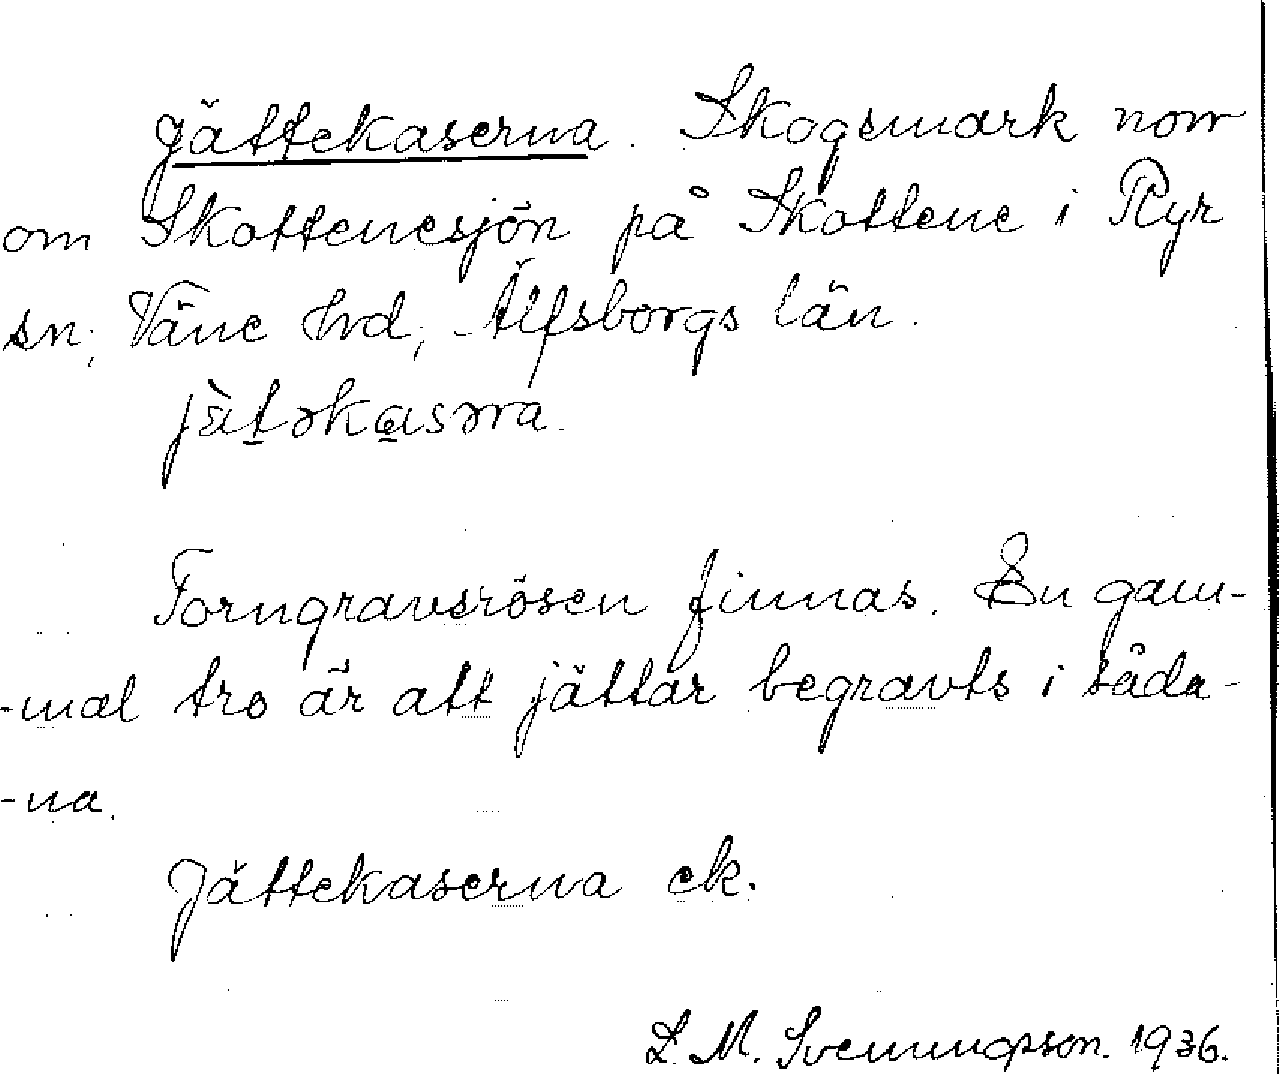 Jättekaserna. Skogsmark norr
om Skottenesjön på Skottene i Ryr
sn, Väne hrd, Älfsborgs län.
jä̀təkasəra.
Forngravsrösen finnas. En gam-
-mal tro är att jättar begravts i såda-
-na.
Jättekaserna ek.
L. M. Svenungsson. 1936.